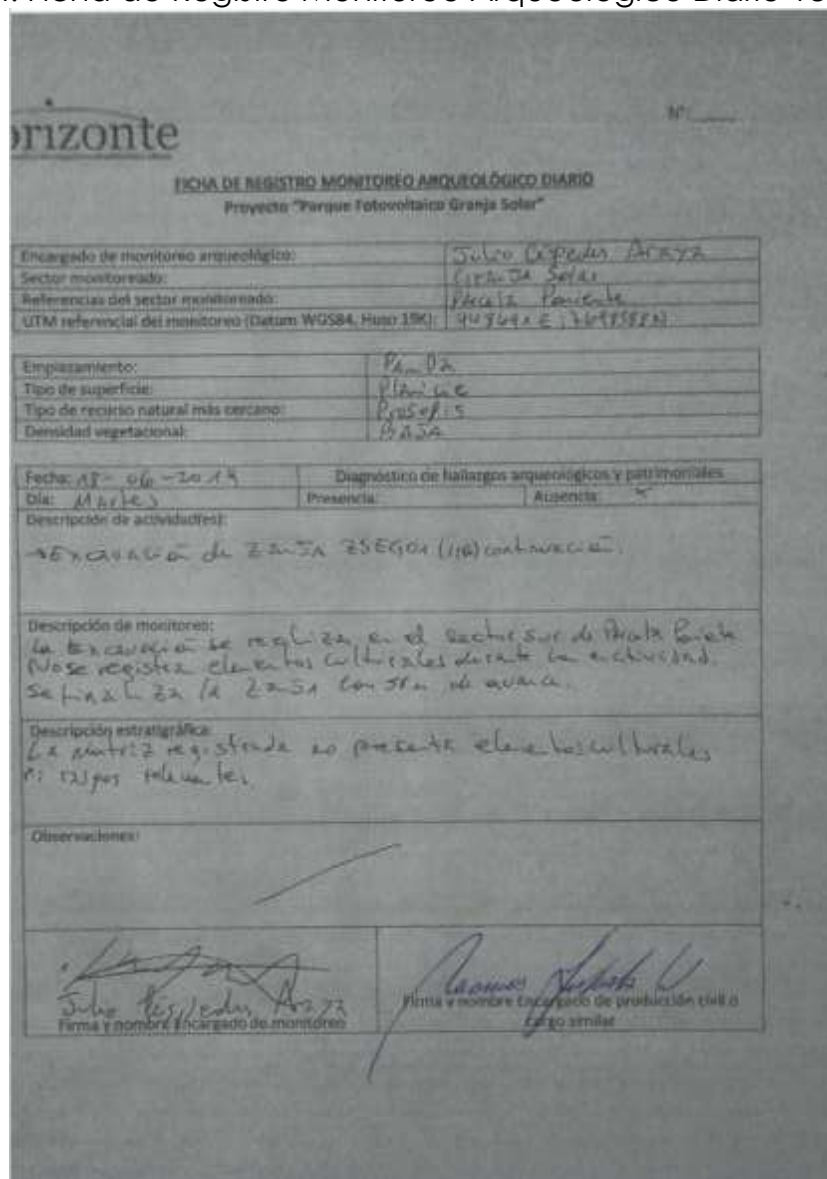 Ficha de Registro Monitoreo Arqueológico Diario
orizonte
N°:
FICHA DE REGISTRO MONITOREO ARQUEOLÓGICO DIARIO
Proyecto "Parque Fotovoltaico Granja Solar"
Encargado de monitoreo arqueológico: Julio Céspedes Araya
Sector monitoreado: Granja Solar
Referencias del sector monitoreado: Poniente
UTM referencial del monitoreo (Datum WGS84, Huso 19K):
Emplazamiento: Pampa
Tipo de superficie: Planicie
Tipo de recurso natural más cercano: Prosopis
Densidad vegetacional: BAJA
Fecha: 18-06-2019 Diagnóstico de hallazgos arqueológicos y patrimoniales
Día: Martes Presencia: Ausencia:
Descripción de actividad(es):
→Excavación de zanja continuación.
Descripción de monitoreo:
La Excavación se realiza en el sector sur de
No se registra elementos culturales durante la actividad.
Se finaliza la zanja con de avance.
Descripción estratigráfica:
La matriz registrada no presenta elementos culturales
ni rasgos relevantes.
Observaciones:
Julio Céspedes Araya
Firma y nombre Encargado de monitoreo
Firma y nombre Encargado de producción civil o
cargo similar